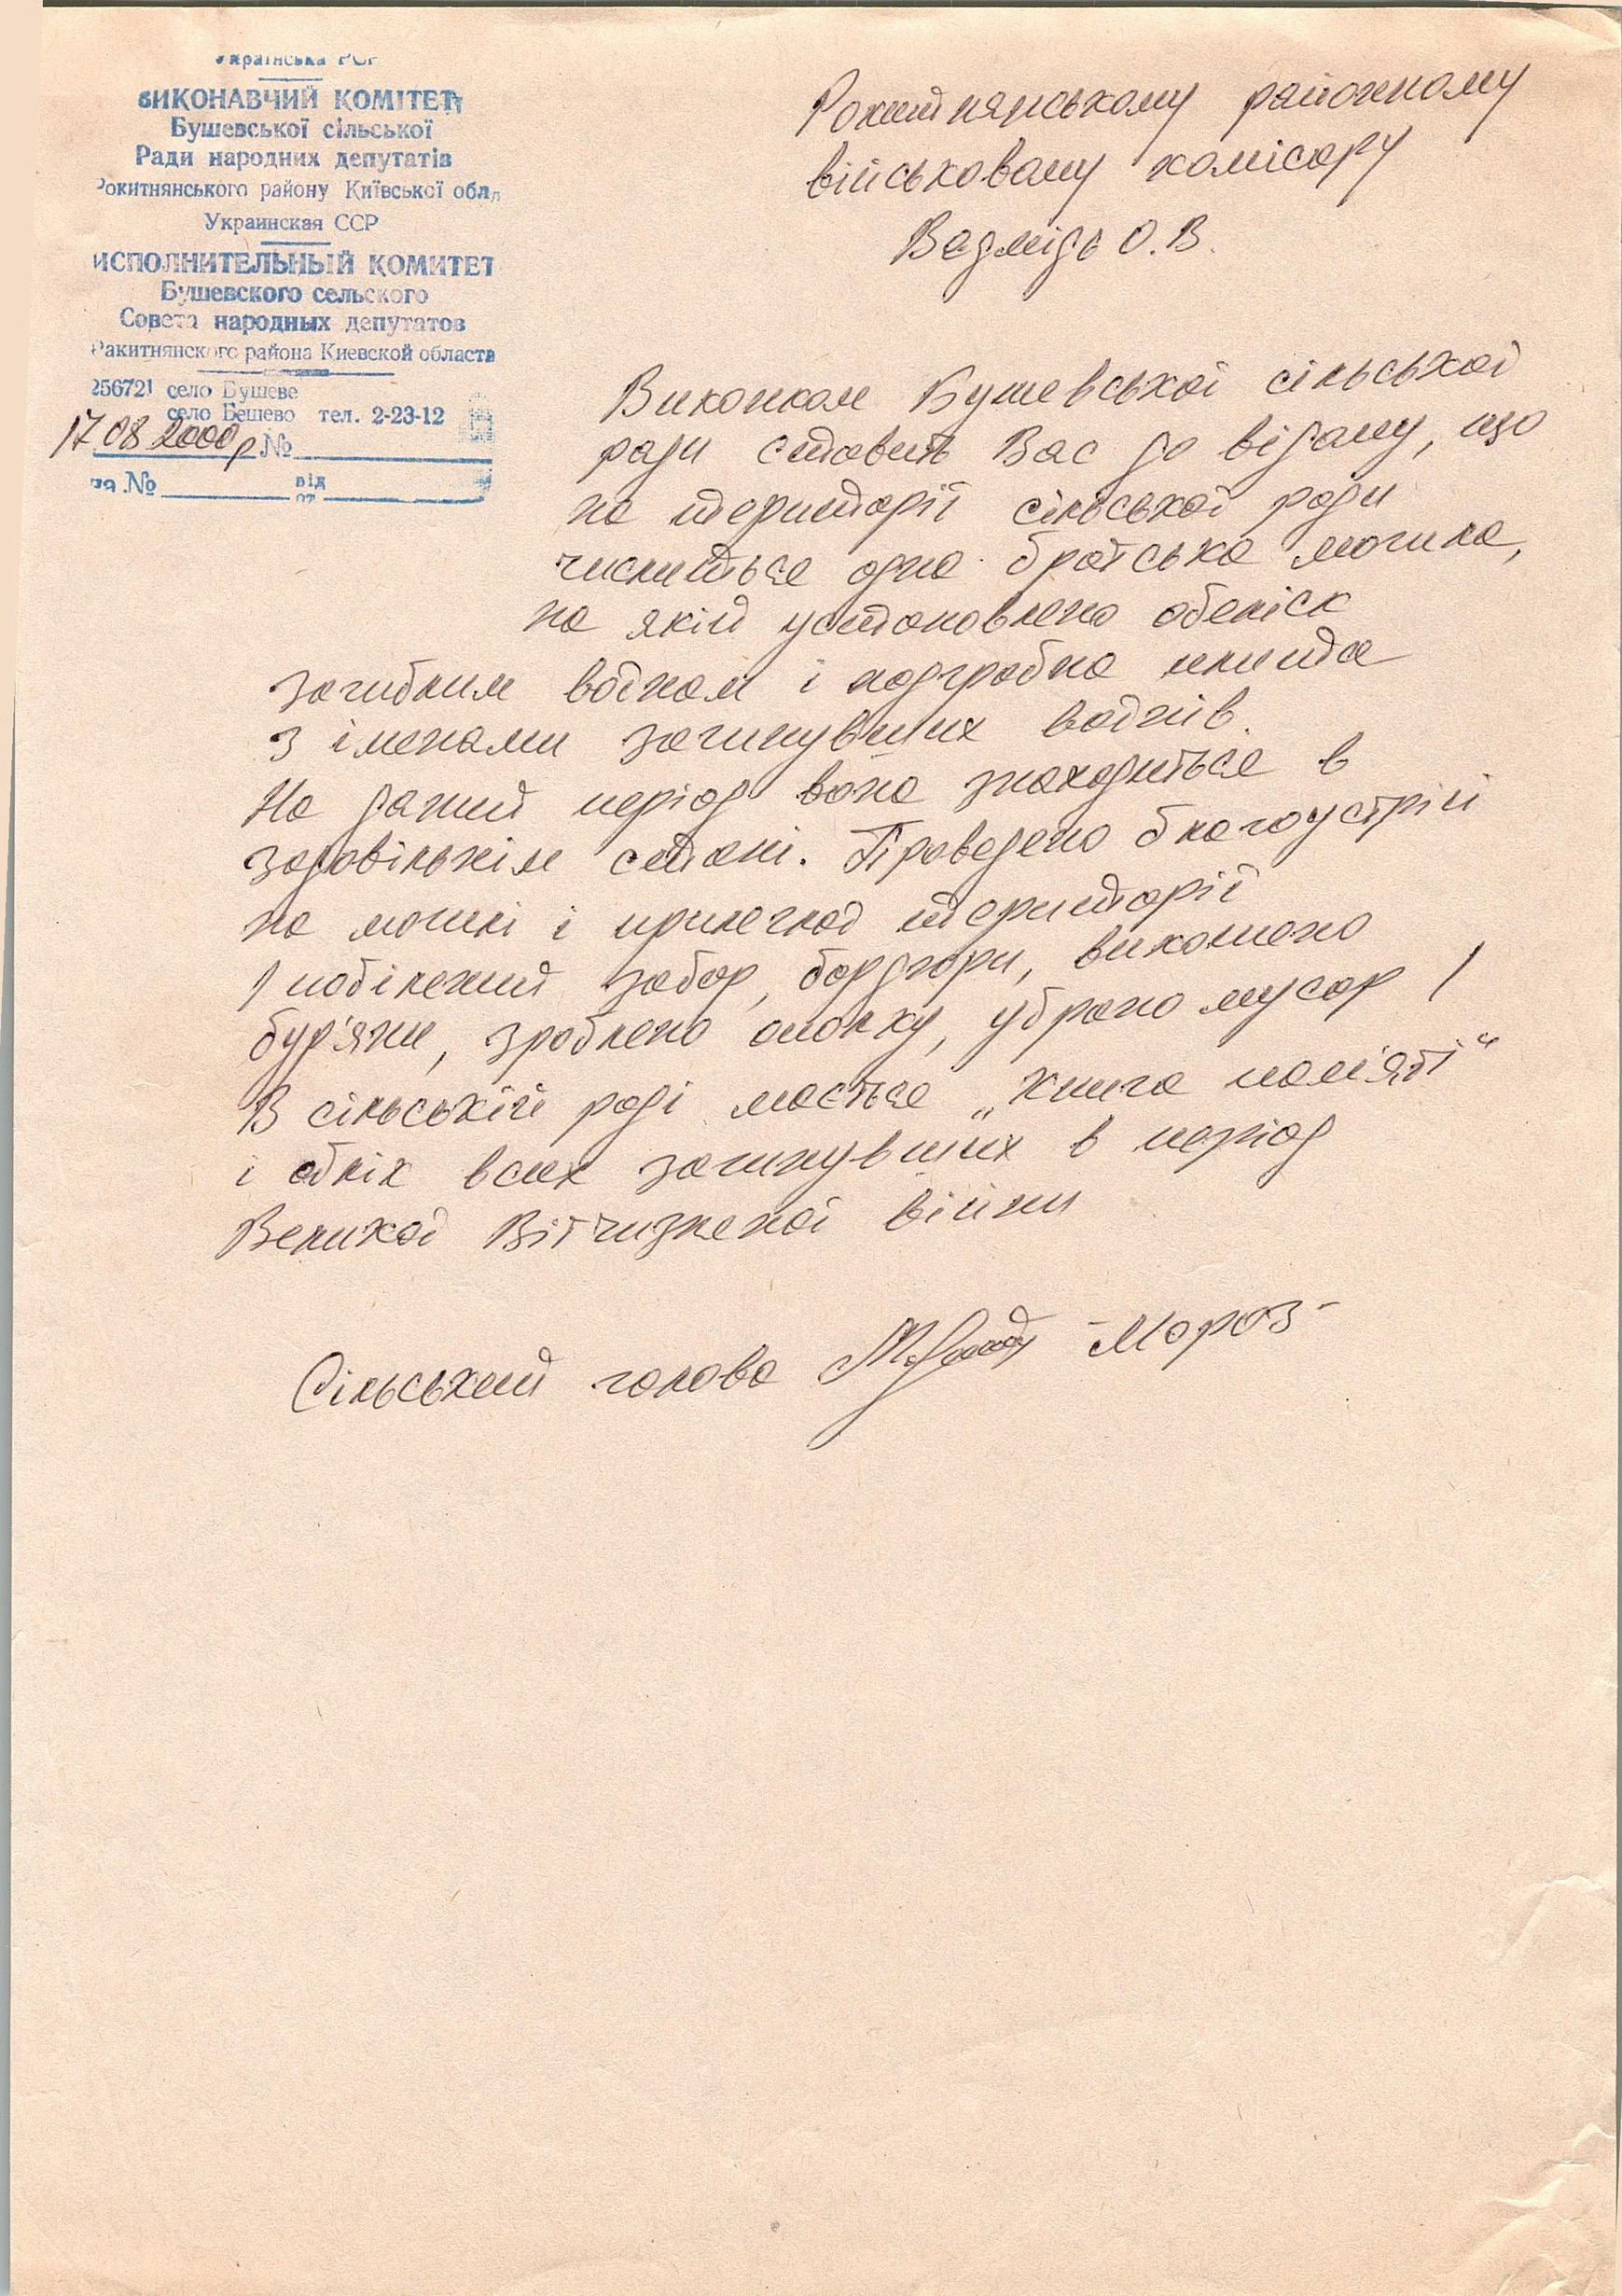 Українська РСР
ВИКОНАВЧИЙ КОМІТЕТ
Бушевської сільської
Ради народних депутатів
Рокитнянського району Київської обл.
Украинская ССР
ИСПОЛНИТЕЛЬНЫЙ КОМИТЕТ
Бушевского сельского
Совета народных депутатов
Ракитнянского района Киевской области
256721 село Бушеве
село Бешево тел. 2-23-12
17 08 2000р №
на № від
от
Рокитнянському районному
військовому комісару
Ведмідь О.В.
Виконком Бушевської сільської
ради ставить Вас до відому, що
на території сільської ради
числиться одна братська могила,
на якій установлено обеліск
загиблим воїнам і надгробна плита
з іменами загинувших воїнів.
На даний період вона знаходиться в
задовільнім стані. Проведено благоустрій
на могилі і прилеглої території
/ побілений забор, бордюри, викошено
бур'яни, зроблено оголку, убрано мусор /
В сільській раді мається „Книга пам'яті“
і облік всих загинувших в період
Великої Вітчизненої війни
Сільський голова Мороз-